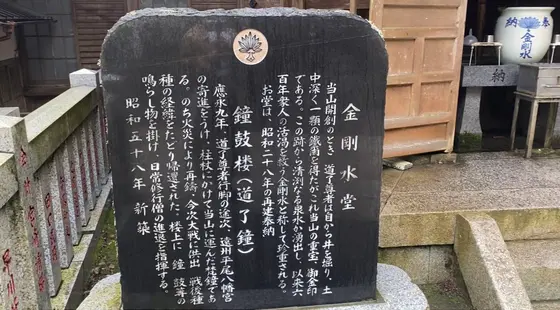 金剛水堂
当山開創のとき 道了尊者は自から井を掘り、土
中深く一顆の鐵印を得たがこれ当山の重宝、御金印
である。この跡から清冽なる泉水が湧出し、以来六
百年衆人の活渇を救う金剛水と称して珍重される。
お堂は、昭和二十八年の再建奉納
鐘鼓楼(道了鐘)
應永九年、道了尊者行脚の途次、遠州平尾八幡宮
の寄進をうけ、柱杖にかけて当山に運んだ梵鐘であ
る。のち火災により再鋳、今次大戦に供出 戦後種
種の経緯をたどり帰還された。楼上に 鐘 鼓等の
鳴らし物を掛け、日常修行僧の進退を指揮する。
昭和五十八年 新築
奉納
金剛水
納